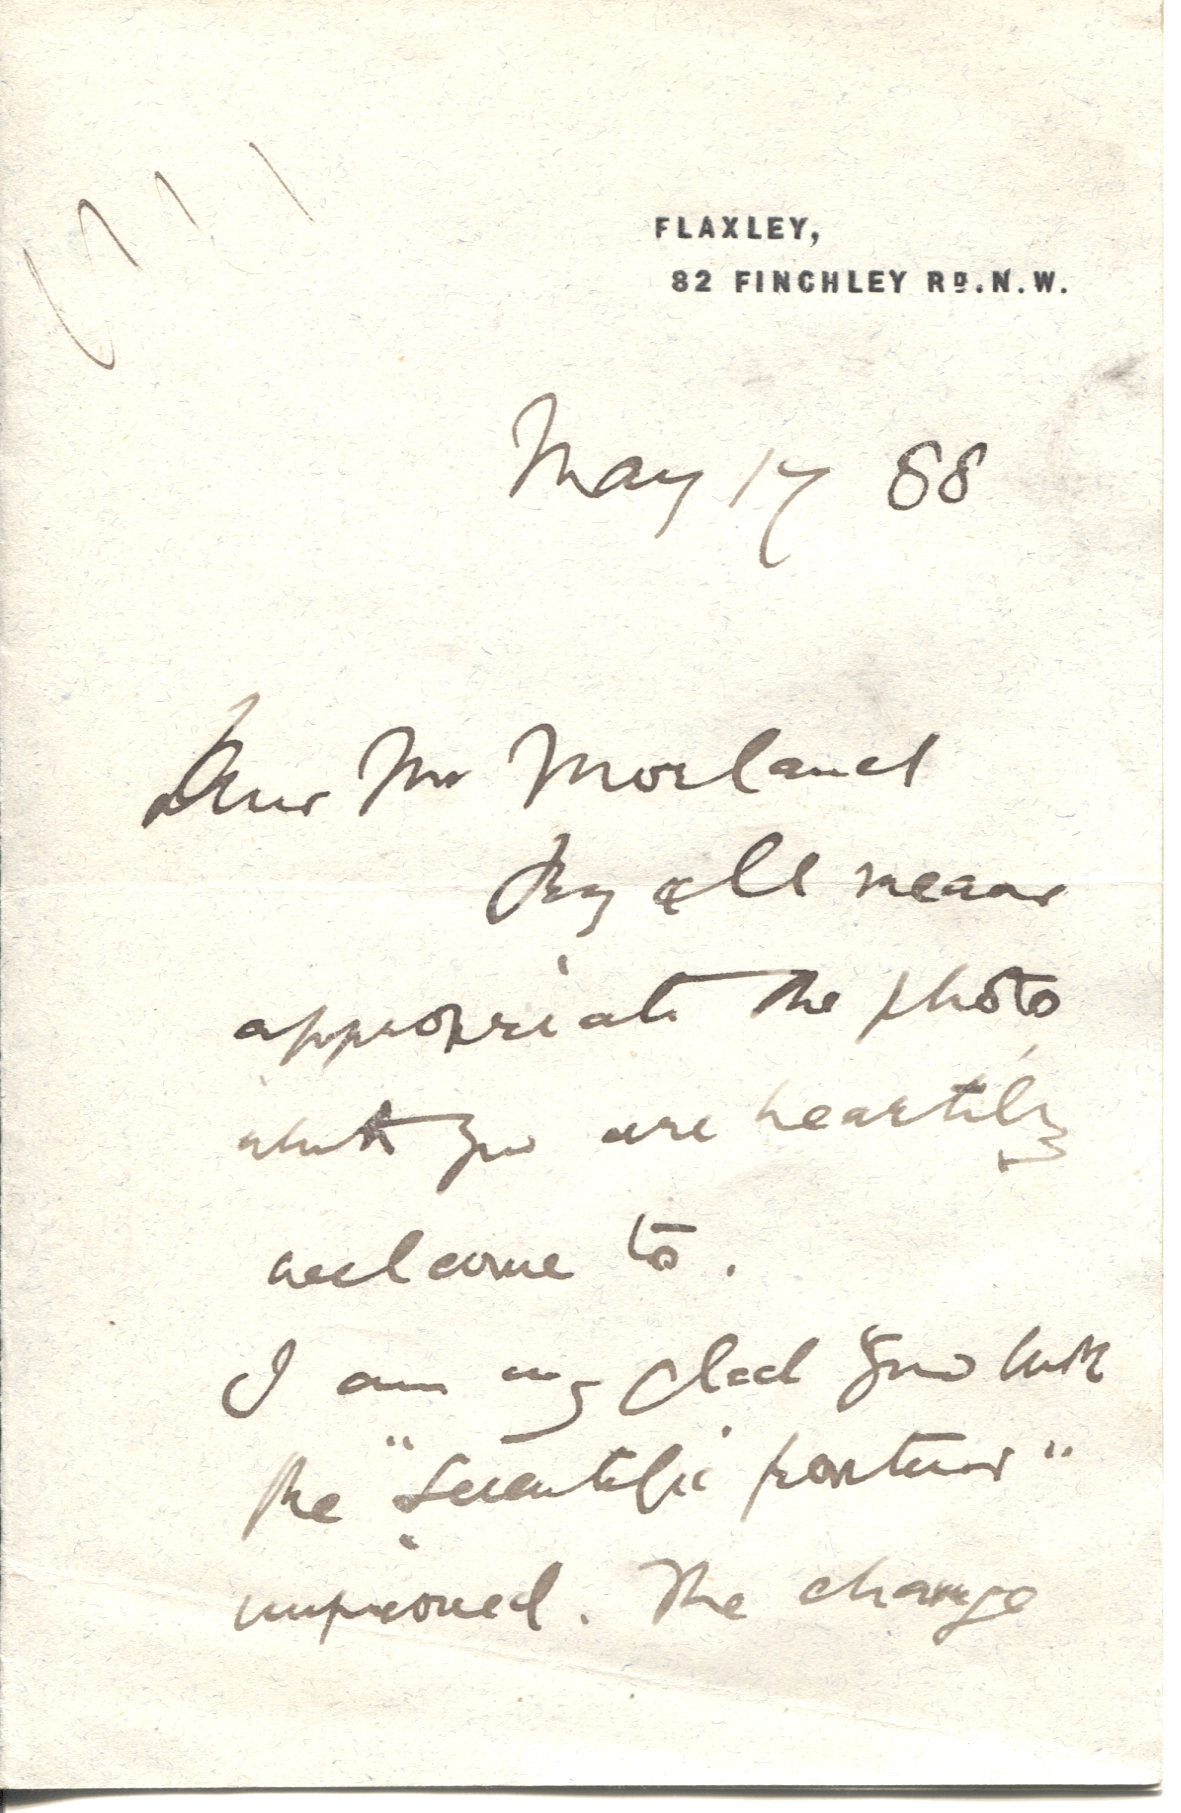 FLAXLEY,
82 FINCHLEY RD. N. W.
May 17 88
Dear Mr Morland
By all means
appropriate the photo
which you are heartily
welcome to.
I am very glad you think
the "Scientific frontier"
improved. The change